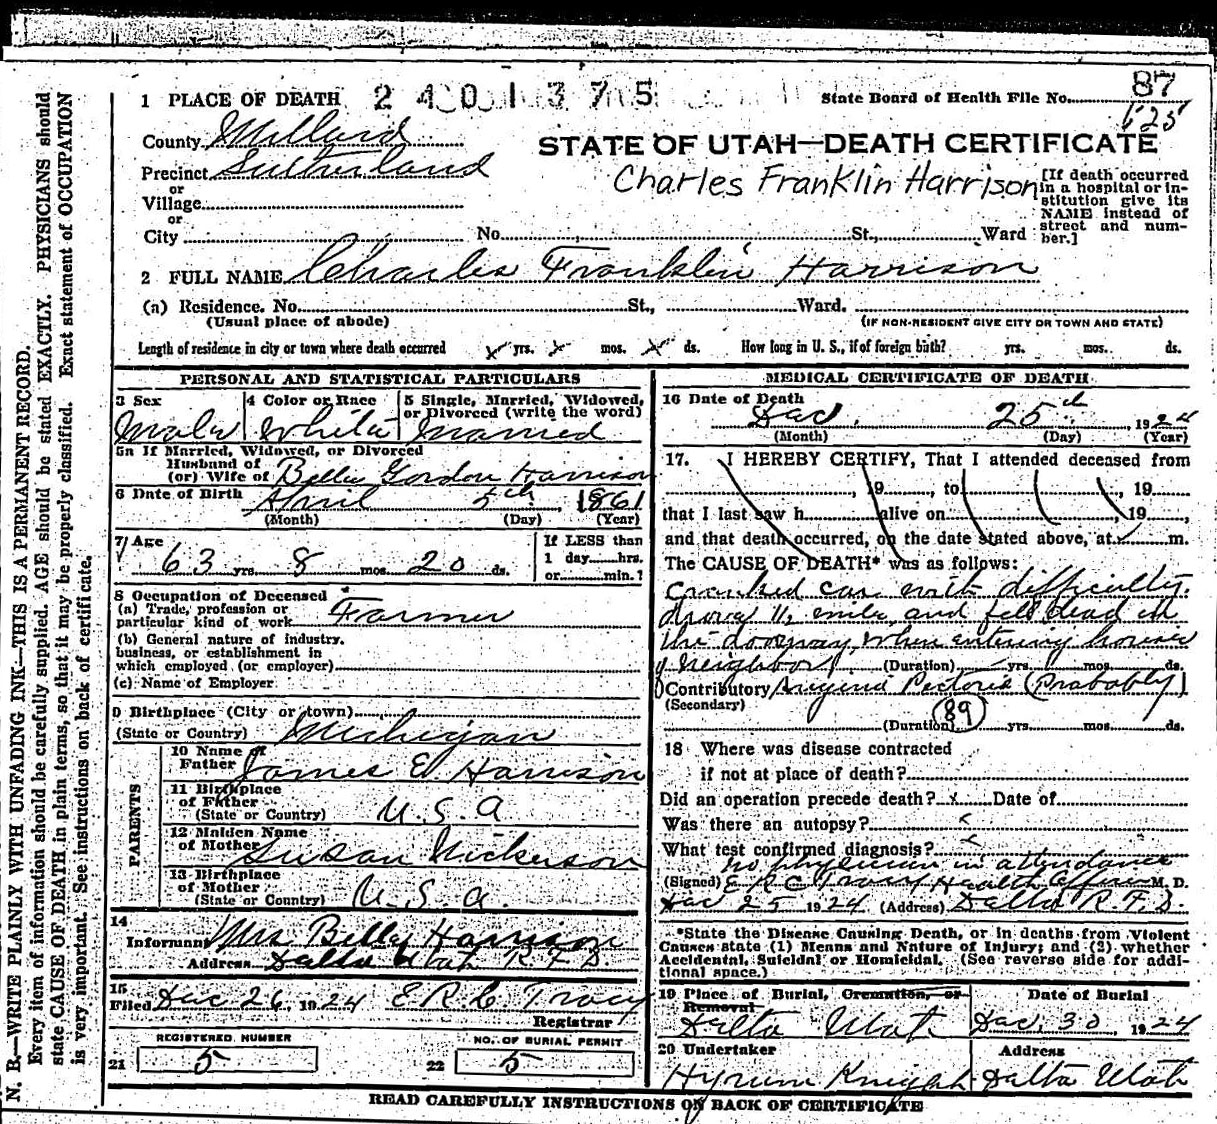 87
1 PLACE OF DEATH 2401375 State Board of Health File No.
625
County Millard
STATE OF UTAH—DEATH CERTIFICATE
Precinct Sutherland
Charles Franklin Harrison
[If death occurred in a hospital or institution give its NAME instead of street and number.]
or
Village
or
City No. St., Ward
2 FULL NAME Charles Franklin Harrison
(a) Residence. No. St., Ward.
(Usual place of abode) (IF NON-RESIDENT GIVE CITY OR TOWN AND STATE)
Length of residence in city or town where death occurred x yrs. x mos. x ds. How long in U. S., if of foreign birth? yrs. mos. ds.
PERSONAL AND STATISTICAL PARTICULARS
3 Sex 4 Color or Race 5 Single, Married, Widowed, or Divorced (write the word)
Male White Married
5a If Married, Widowed, or Divorced
Husband of
(or) Wife of Bella Gordon Harrison
6 Date of Birth April 5th, 1861
(Month) (Day) (Year)
7 Age If LESS than
63 yrs. 8 mos. 20 ds. 1 day hrs.
or min.?
8 Occupation of Deceased
(a) Trade, profession or particular kind of work Farmer
(b) General nature of industry, business, or establishment in which employed (or employer)
(c) Name of Employer
9 Birthplace (City or town)
(State or Country) Michigan
PARENTS
10 Name of Father James E. Harrison
11 Birthplace of Father (State or Country) U.S.A
12 Maiden Name of Mother Susan Nickerson
13 Birthplace of Mother (State or Country) U.S.a.
14
Informant Mrs Bella Harrison
Address Delta Utah R F D.
15
Filed Dec 26, 1924 E R C Tracy
Registrar
REGISTERED NUMBER NO. OF BURIAL PERMIT
21 5 22 5
MEDICAL CERTIFICATE OF DEATH
16 Date of Death
Dec. 25th, 1924
(Month) (Day) (Year)
17. I HEREBY CERTIFY, That I attended deceased from
, 19 , to , 19
that I last saw h alive on , 19 ,
and that death occurred, on the date stated above, at m.
The CAUSE OF DEATH* was as follows:
cranked car with difficulty.
drove 1½ mile, and fell dead in
the doorway, when entering house
of neighbor (Duration) yrs. mos. ds.
Contributory Angina Pectoris (Probably)
(Secondary)
(Duration) 89 yrs. mos. ds.
18 Where was disease contracted
if not at place of death?
Did an operation precede death? x Date of
Was there an autopsy?
What test confirmed diagnosis?
no physician in attendance
(Signed) E R C Tracy Health Officer M. D.
Dec 25 1924 (Address) Delta R.F.D.
*State the Disease Causing Death, or in deaths from Violent
Causes state (1) Means and Nature of Injury; and (2) whether
Accidental, Suicidal or Homicidal. (See reverse side for addi-
tional space.)
19 Place of Burial, Cremation, or Removal Date of Burial
Delta Utah Dec. 30 1924
20 Undertaker Address
Hyrum Knight Delta Utah
READ CAREFULLY INSTRUCTIONS ON BACK OF CERTIFICATE
N. B.—WRITE PLAINLY WITH UNFADING INK—THIS IS A PERMANENT RECORD.
Every item of information should be carefully supplied. AGE should be stated EXACTLY. PHYSICIANS should
state CAUSE OF DEATH in plain terms, so that it may be properly classified. Exact statement of OCCUPATION
is very important. See instructions on back of certificate.